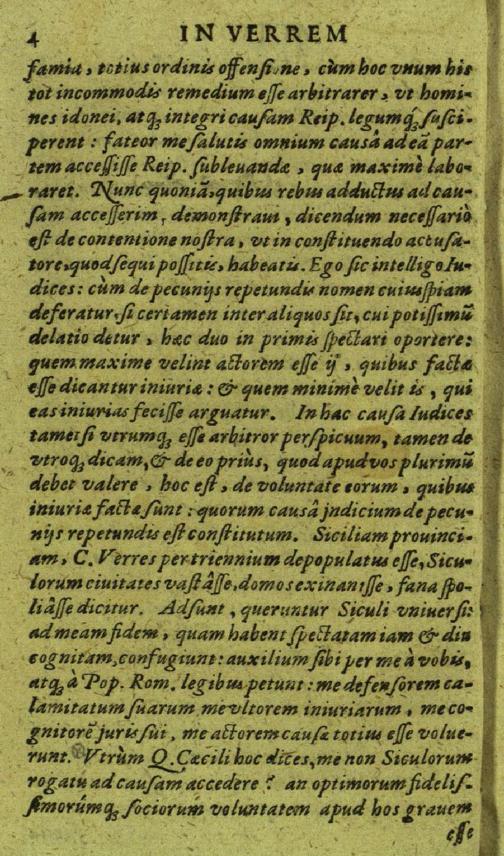 4 IN VERREM
famia, totius ordinis offensione, cùm hoc vnum his
tot incommodis remedium esse arbitrarer, vt homi-
nes idonei, atq; integri causam Reip. legumq́; susci-
perent: fateor me salutis omnium causâ ad eā par-
tem accessisse Reip. subleuandæ, quæ maximè labo-
raret. Nunc quoniā, quibus rebus adductus ad cau-
sam accesserim, demonstraui, dicendum necessariò
est de contentione nostra, vt in constituendo accusa-
tore, quod sequi possitis, habeatis. Ego sic intelligo Iu-
dices: cùm de pecunijs repetundis nomen cuiuspiam
deferatur, si certamen inter aliquos sit, cui potissimū
delatio detur, hæc duo in primis spectari oportere:
quem maxime velint actorem esse ij, quibus factæ
esse dicantur iniuriæ: & quem minimè velit is, qui
eas iniurias fecisse arguatur. In hac causa Iudices
tametsi vtrumq; esse arbitror perspicuum, tamen de
vtroq; dicam, & de eo priùs, quod apud vos plurimū
debet valere, hoc est, de voluntate eorum, quibus
iniuriæ factæ sunt: quorum causâ judicium de pecu-
nijs repetundis est constitutum. Siciliam prouinci-
am, C. Verres per triennium depopulatus esse, Sicu-
lorum ciuitates vastâsse, domos exinanisse, fana spo-
liâsse dicitur. Adsunt, queruntur Siculi vniuersi:
ad meam fidem, quam habent spectatam iam & diu
cognitam, confugiunt: auxilium sibi per me à vobis,
atq; à Pop. Rom. legibus petunt: me defensorem ca-
lamitatum suarum, me vltorem iniuriarum, me co-
gnitorē juris sui, me actorem causæ totius esse volue-
runt. Vtrùm Q. Cæcili hoc dices, me non Siculorum
rogatu ad causam accedere? an optimorum fidelis-
simorúmq; sociorum voluntatem apud hos grauem
esse